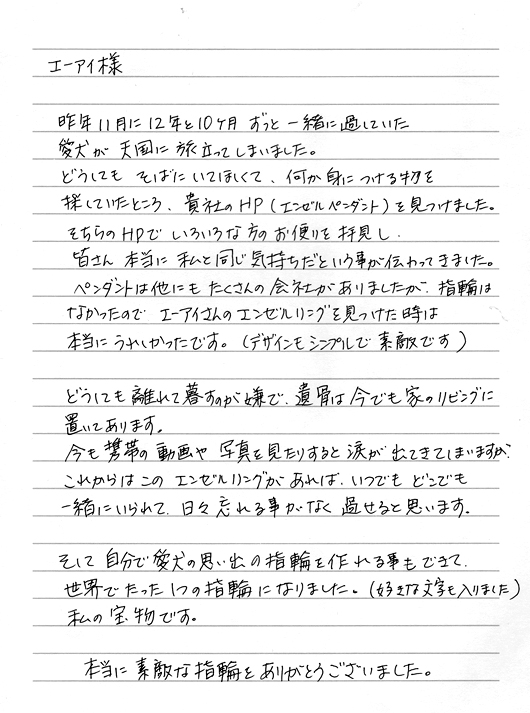 エーアイ様
昨年11月に12年と10ヶ月 ずっと一緒に過していた
愛犬が 天国に旅立ってしまいました。
どうしても そばにいてほしくて、何か身につける物を
探していたところ、貴社のHP(エンゼルペンダント)を見つけました。
そちらのHPで いろいろな方のお便りを拝見し、
皆さん 本当に 私と同じ気持ちだという事が伝わってきました。
ペンダントは他にも たくさんの会社がありましたが、指輪は
なかったので エーアイさんのエンゼルリングを見つけた時は
本当にうれしかったです。(デザインもシンプルで 素敵です)
どうしても 離れて暮すのが嫌で、遺骨は今でも 家のリビングに
置いてあります。
今も 携帯の動画や 写真を見たりすると涙が出てきてしまいますが、
これからはこの エンゼルリングがあれば、いつでも どこでも
一緒にいられて、日々忘れる事がなく 過せると思います。
そして 自分で愛犬の思い出の指輪を作れる事もできて、
世界でたった1つの指輪になりました。(好きな文字も入りました)
私の宝物です。
本当に素敵な指輪をありがとうございました。